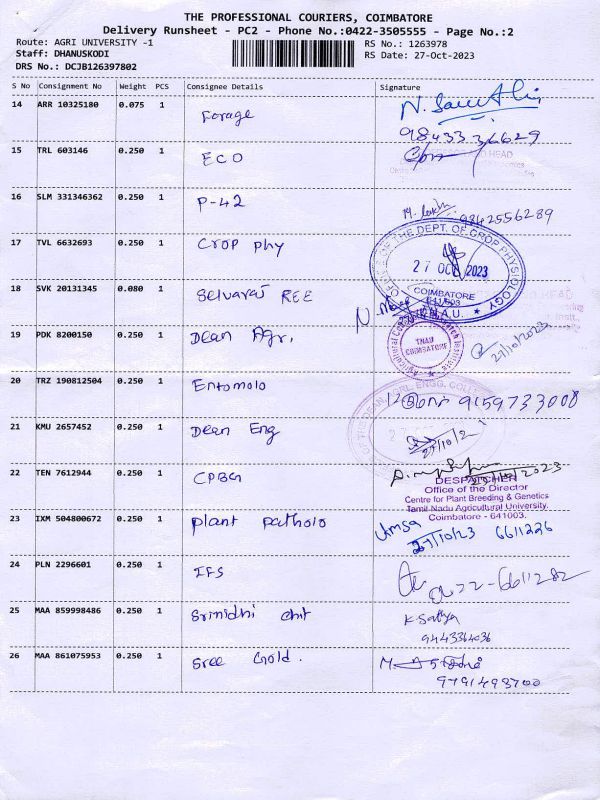 THE PROFESSIONAL COURIERS, COIMBATORE
Delivery Runsheet - PC2 - Phone No.:0422-3505555 - Page No.:2
Route: AGRI UNIVERSITY -1
RS No.: 1263978
Staff: DHANUSKODI
RS Date: 27-Oct-2023
DRS No.: DCJB126397802
S No Consignment No Weight PCS Consignee Details Signature
14 ARR 10325180 0.075 1 Forage
98433 36629
15 TRL 603146 0.250 1 ECO
16 SLM 331346362 0.250 1 P-42
9842556289
17 TVL 6632693 0.250 1 Crop phy
OFFICE OF THE DEPT. OF CROP PHYSIOLOGY
27 OCT 2023
COIMBATORE
641 003
T.N.A.U.
18 SVK 20131345 0.080 1 Selvaraj REE
19 PDK 8200150 0.250 1 Dean Agr.
TNAU
COIMBATORE
27/10/2023
20 TRZ 190812504 0.250 1 Entomolo
9159733008
21 KMU 2657452 0.250 1 Dean Eng
27/10/2
22 TEN 7612944 0.250 1 CPBG
DESPATCHER
Office of the Director
Centre for Plant Breeding & Genetics
Tamil Nadu Agricultural University
Coimbatore - 641003.
23 IXM 504800672 0.250 1 plant patholo
Umsa
27/10/23 6611226
24 PLN 2296601 0.250 1 IFS
0422-6611282
25 MAA 859998486 0.250 1 Srinidhi chit
K. Sathya
9443364036
26 MAA 861075953 0.250 1 Sree Gold.
9791493700